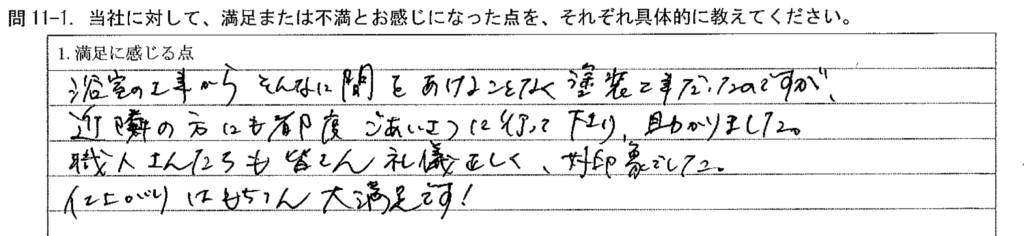 問11-1. 当社に対して、満足または不満とお感じになった点を、それぞれ具体的に教えてください。
1. 満足に感じる点
浴室の工事からそんなに間をあけることなく塗装工事だったのですが、
近隣の方にも都度ごあいさつに行って下さり、助かりました。
職人さんたちも皆さん礼儀正しく、好印象でした。
仕上がりはもちろん大満足です!